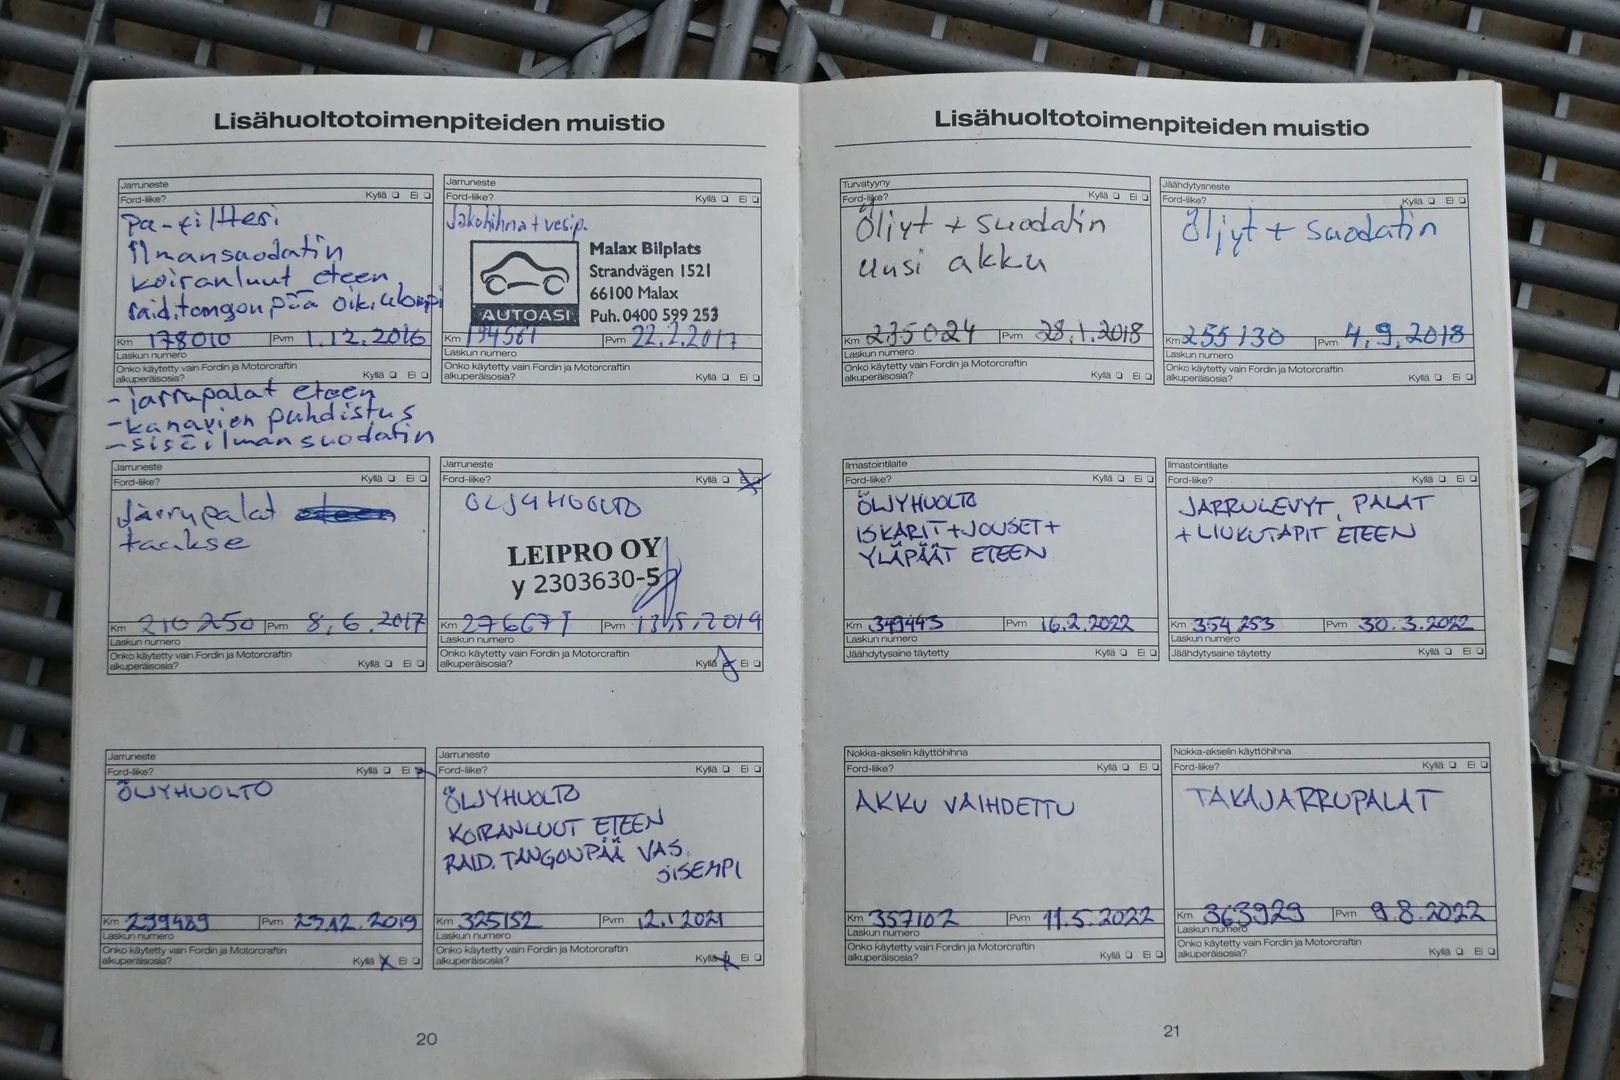 Lisähuoltotoimenpiteiden muistio
Jarruneste
Ford-liike? Kyllä Ei
pa-filtteri
ilmansuodatin
koiranluut eteen
raid.tangonpää oik.ulompi
Km 178010 Pvm 1.12.2016
Laskun numero
Onko käytetty vain Fordin ja Motorcraftin
alkuperäisosia? Kyllä Ei
-jarrupalat eteen
-kanavien puhdistus
-sisäilmansuodatin
Jarruneste
Ford-liike? Kyllä Ei
Jakohihna + vesip.
AUTOASI
Malax Bilplats
Strandvägen 1521
66100 Malax
Puh. 0400 599 253
Km 194567 Pvm 22.2.2017
Laskun numero
Onko käytetty vain Fordin ja Motorcraftin
alkuperäisosia? Kyllä Ei
Jarruneste
Ford-liike? Kyllä Ei
Jarrupalat
taakse
Km 210250 Pvm 8.6.2017
Laskun numero
Onko käytetty vain Fordin ja Motorcraftin
alkuperäisosia? Kyllä Ei
Jarruneste
Ford-liike? Kyllä Ei
ÖLJYHUOLTO
LEIPRO OY
y 2303630-5
Km 276671 Pvm 13.5.2019
Laskun numero
Onko käytetty vain Fordin ja Motorcraftin
alkuperäisosia? Kyllä Ei
Jarruneste
Ford-liike? Kyllä Ei
ÖLJYHUOLTO
Km 299489 Pvm 23.12.2019
Laskun numero
Onko käytetty vain Fordin ja Motorcraftin
alkuperäisosia? Kyllä Ei
Jarruneste
Ford-liike? Kyllä Ei
ÖLJYHUOLTO
KOIRANLUUT ETEEN
RAID. TANGONPÄÄ VAS.
SISEMPI
Km 325152 Pvm 12.1.2021
Laskun numero
Onko käytetty vain Fordin ja Motorcraftin
alkuperäisosia? Kyllä Ei
20
Lisähuoltotoimenpiteiden muistio
Turvatyyny
Ford-liike? Kyllä Ei
Öljyt + suodatin
uusi akku
Km 235024 Pvm 28.1.2018
Laskun numero
Onko käytetty vain Fordin ja Motorcraftin
alkuperäisosia? Kyllä Ei
Jäähdytysneste
Ford-liike? Kyllä Ei
Öljyt + suodatin
Km 255130 Pvm 4.9.2018
Laskun numero
Onko käytetty vain Fordin ja Motorcraftin
alkuperäisosia? Kyllä Ei
Ilmastointilaite
Ford-liike? Kyllä Ei
ÖLJYHUOLTO
ISKARIT+JOUSET+
YLÄPÄÄT ETEEN
Km 349443 Pvm 16.2.2022
Laskun numero
Jäähdytysaine täytetty Kyllä Ei
Ilmastointilaite
Ford-liike? Kyllä Ei
JARRULEVYT, PALAT
+ LIUKUTAPIT ETEEN
Km 354253 Pvm 30.3.2022
Laskun numero
Jäähdytysaine täytetty Kyllä Ei
Nokka-akselin käyttöhihna
Ford-liike? Kyllä Ei
AKKU VAIHDETTU
Km 357102 Pvm 11.5.2022
Laskun numero
Onko käytetty vain Fordin ja Motorcraftin
alkuperäisosia? Kyllä Ei
Nokka-akselin käyttöhihna
Ford-liike? Kyllä Ei
TAKAJARRUPALAT
Km 363929 Pvm 9.8.2022
Laskun numero
Onko käytetty vain Fordin ja Motorcraftin
alkuperäisosia? Kyllä Ei
21